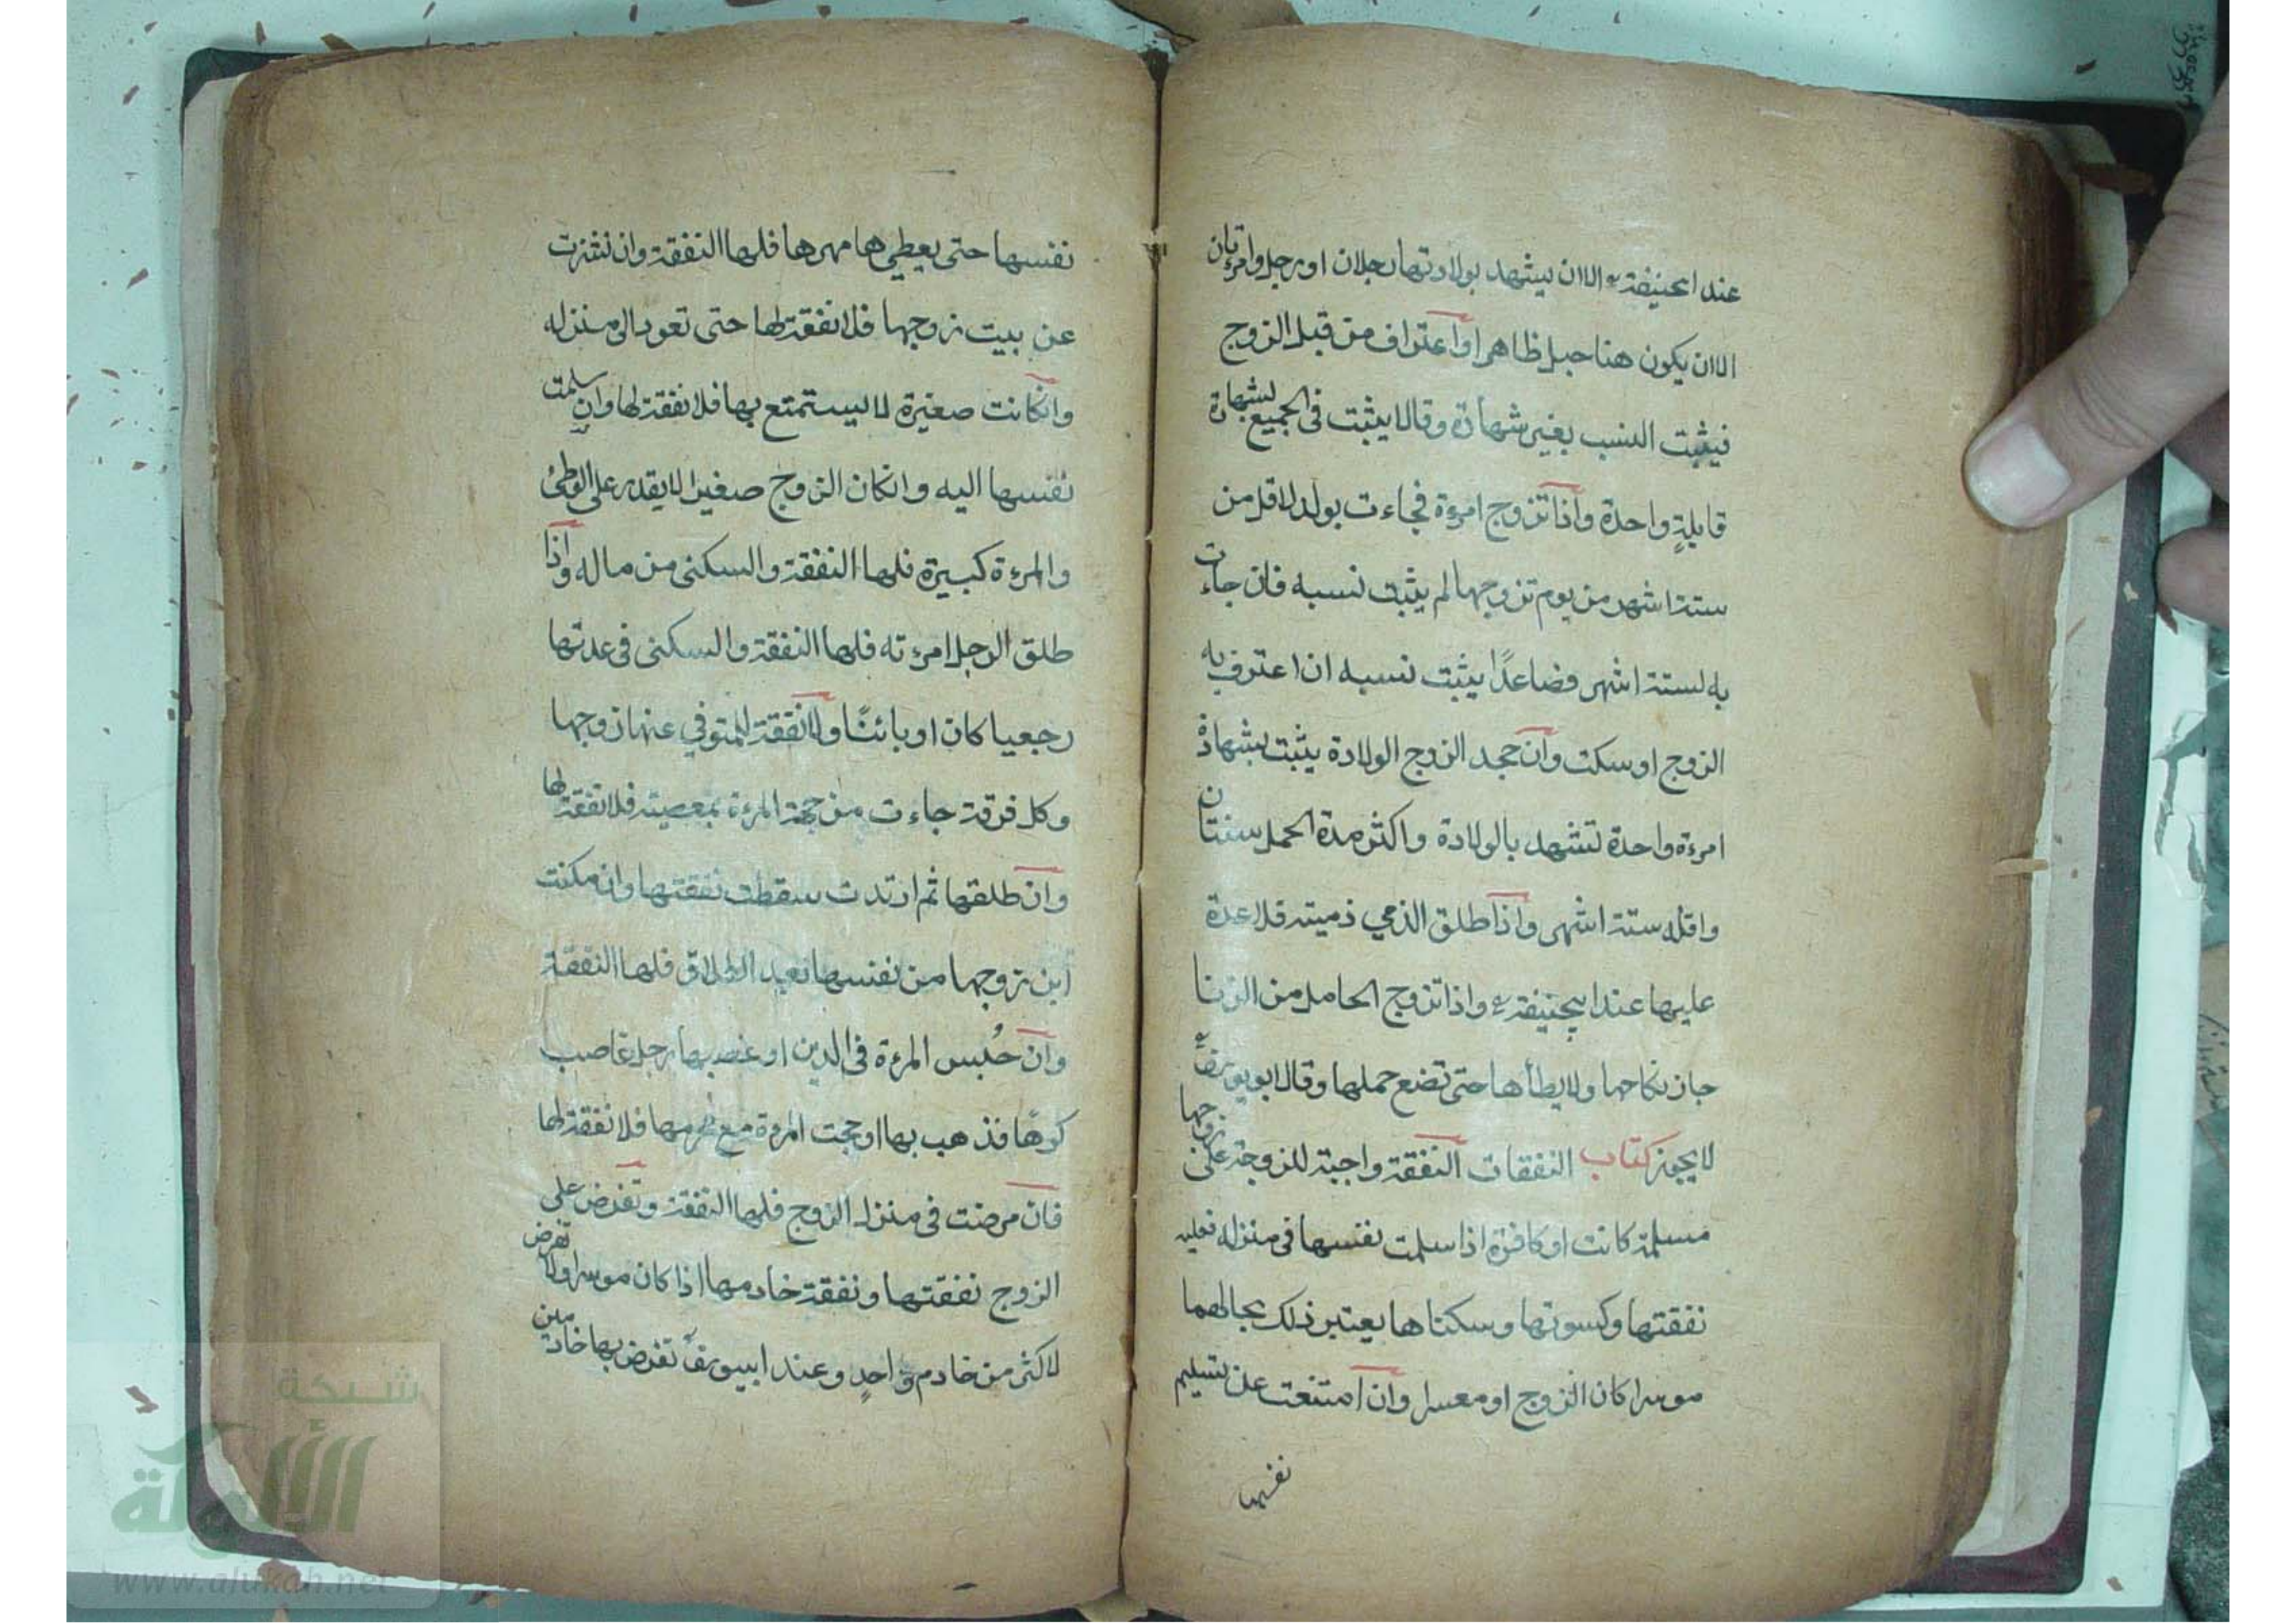 عند ابيحنيفة الا ان يشهد بولادتها رجلان او رجل وامرءتان
الا ان يكون هنا حبل ظاهر او اعتراف من قبل الزوج
فيثبت النسب بغير شهادة وقالا يثبت في الجميع لشهادة
قابلةٍ واحدة واذا تزوج امرءة فجاءت بولد لاقل من
ستة اشهر من يوم تزوجها لم يثبت نسبه فان جاءت
به لستة اشهر فضاعدًا يثبت نسبه ان اعترف به
الزوج او سكت وان جحد الزوج الولادة يثبت بشهادة
امرءة واحدة تشهد بالولادة واكثر مدة الحمل سنتان
واقله ستة اشهر واذا طلق الذمي ذمية فلا عدة
عليها عند ابيحنيفة واذا تزوج الحامل من الزنا
جاز نكاحها ولا يطأها حتى تضع حملها وقال ابويوسف
لا يجوز كتاب النفقات النفقة واجبة للزوجة على زوجها
مسلمة كانت او كافرة اذا سلمت نفسها في منزله فعليه
نفقتها وكسوتها وسكناها يعتبر ذلك بحالهما
موسرا كان الزوج او معسرا وان امتنعت عن تسليم
نفسها
نفسها حتى يعطيها مهرها فلها النفقة وان نشزت
عن بيت زوجها فلا نفقة لها حتى تعود الى منزله
وانكانت صغيرة لا يستمتع بها فلا نفقة لها وان سلمت
نفسها اليه وانكان الزوج صغيرا لا يقدر على الوطئ
والمرءة كبيرة فلها النفقة والسكنى من ماله واذا
طلق الرجل امرءته فلها النفقة والسكنى في عدتها
رجعيا كان او بائنًا ولا نفقة للمتوفي عنها زوجها
وكل فرقة جاءت من جهة المرءة بمعصية فلا نفقة لها
وان طلقها ثم ارتدت سقطت نفقتها وان مكنت
ابن زوجها من نفسها بعد الطلاق فلها النفقة
وان حُبس المرءة في الدين او غصبها رجل غاصب
كرهًا فذهب بها او حجت المرءة مع محرمها فلا نفقة لها
فان مرضت في منزل الزوج فلها النفقة وتفرض على
الزوج نفقتها ونفقة خادمها اذا كان موسرا ولا تفرض
لاكثر من خادم واحدٍ وعند ابييوسف تفرض بها خادمين
شبكة
الألوكة
www.alukah.net